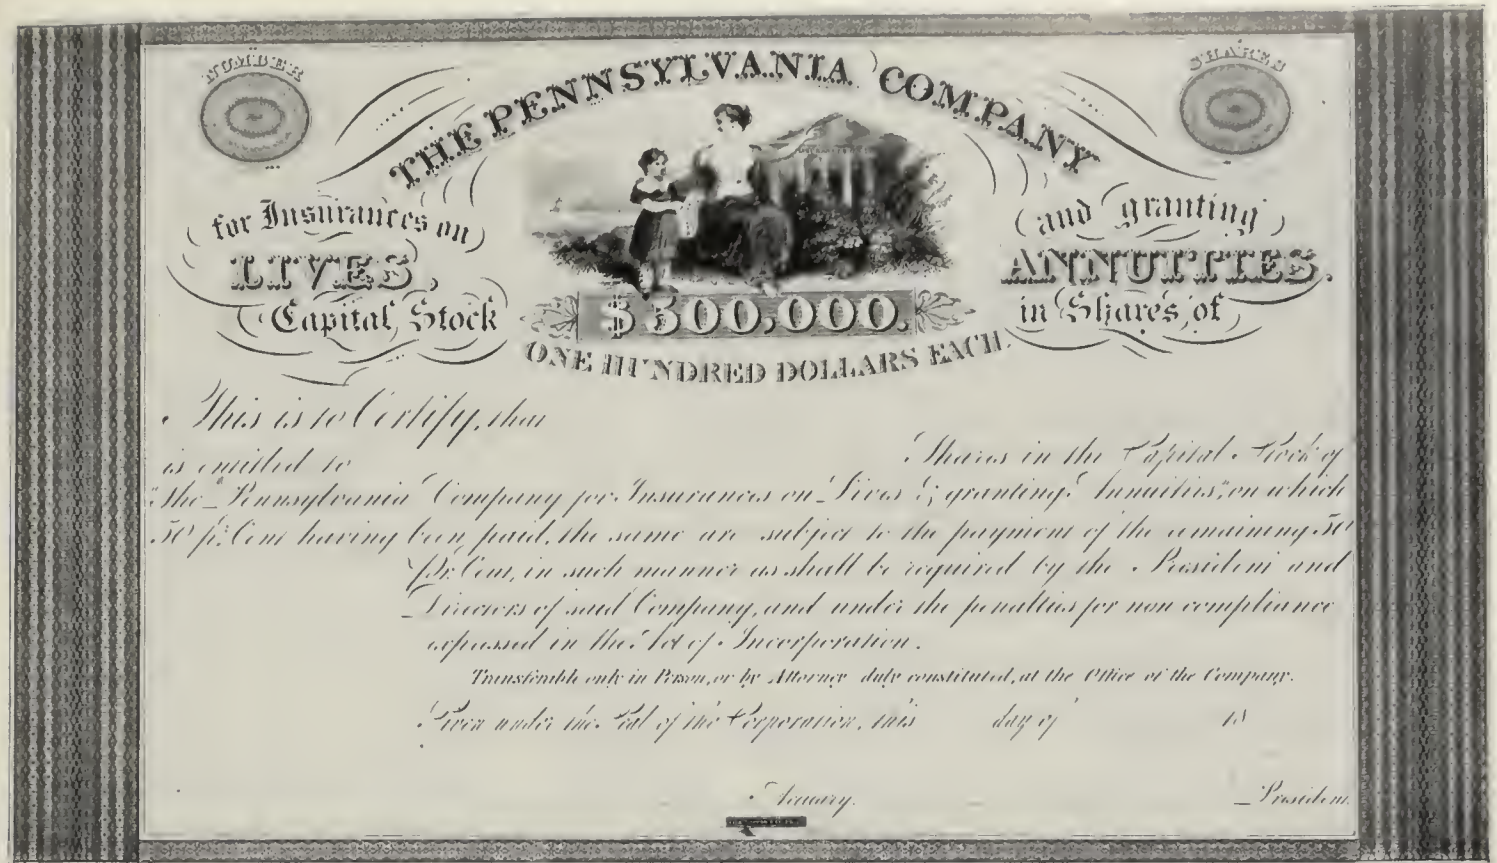 NUMBER
SHARES
THE PENNSYLVANIA COMPANY
for Insurances on
LIVES,
Capital Stock
and granting
ANNUITIES.
in Shares, of
$500,000.
ONE HUNDRED DOLLARS EACH.
This is to Certify, that
is entitled to Shares in the Capital Stock of
"The Pennsylvania Company for Insurances on Lives & granting Annuities," on which
50 pr. Cent having been paid, the same are subject to the payment of the remaining 50
pr. Cent, in such manner as shall be required by the President and
Directors of said Company, and under the penalties for non compliance
expressed in the Act of Incorporation.
Transferable only in Person, or by Attorney duly constituted, at the Office of the Company.
Given under the Seal of the Corporation, this day of 18
President.